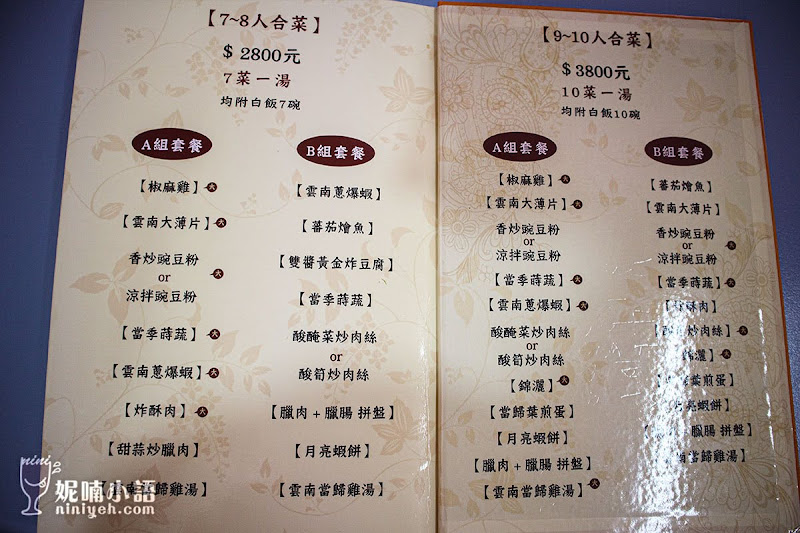 【7~8人合菜】
$ 2800元
7菜一湯
均附白飯7碗
A組套餐
【椒麻雞】大
【雲南大薄片】大
香炒豌豆粉
or 大
涼拌豌豆粉
【當季蒔蔬】大
【雲南蔥爆蝦】大
【炸酥肉】大
【甜蒜炒臘肉】
歸雞湯】
B組套餐
【雲南蔥爆蝦】
【蕃茄燴魚】
【雙醬黃金炸豆腐】
【當季蒔蔬】
酸醃菜炒肉絲
or
酸筍炒肉絲
【臘肉+臘腸 拼盤】
【月亮蝦餅】
【雲南當歸雞湯】
【9~10人合菜】
$3800元
10菜一湯
均附白飯10碗
A組套餐
【椒麻雞】大
【雲南大薄片】大
香炒豌豆粉
or
涼拌豌豆粉
【當季蒔蔬】大
【雲南蔥爆蝦】大
酸醃菜炒肉絲
or
酸筍炒肉絲
【錦灑】大
【當歸葉煎蛋】
【月亮蝦餅】
【臘肉+臘腸 拼盤】
【雲南當歸雞湯】大
B組套餐
【蕃茄燴魚】
【雲南大薄片】
香炒豌豆粉
or 大
涼拌豌豆粉
【當季蒔蔬】大
酥肉】
炒肉絲】大
錦灑】大
葉煎蛋】
月亮蝦餅】
+ 臘腸 拼盤】
當歸雞湯】
nini
妮喃小語
niniyeh.com